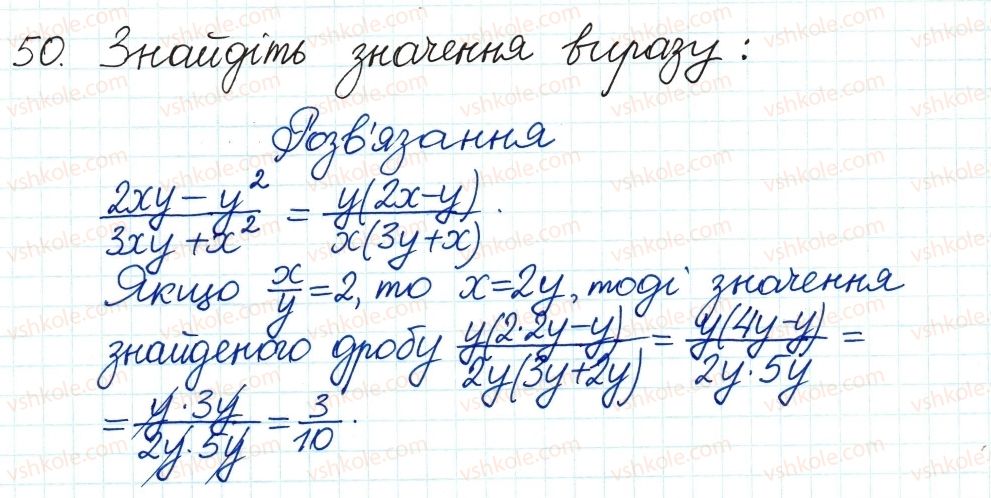 50. Знайдіть значення виразу:
Розв'язання
(2xy - y²)/(3xy + x²) = y(2x-y)/x(3y+x).
Якщо x/y = 2, то x=2y, тоді значення
знайденого дробу y(2·2y-y)/2y(3y+2y) = y(4y-y)/2y·5y =
= y·3y/2y·5y = 3/10.